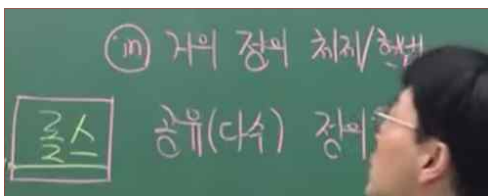 in 거의 정의 체제/헌법
롤스 공유(다수) 정의